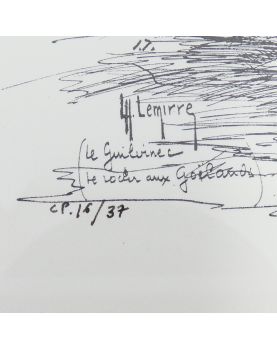 I.T.
H. Lemirre
Le Guilvinec
le rocher aux Goëlands
CP. 16/37